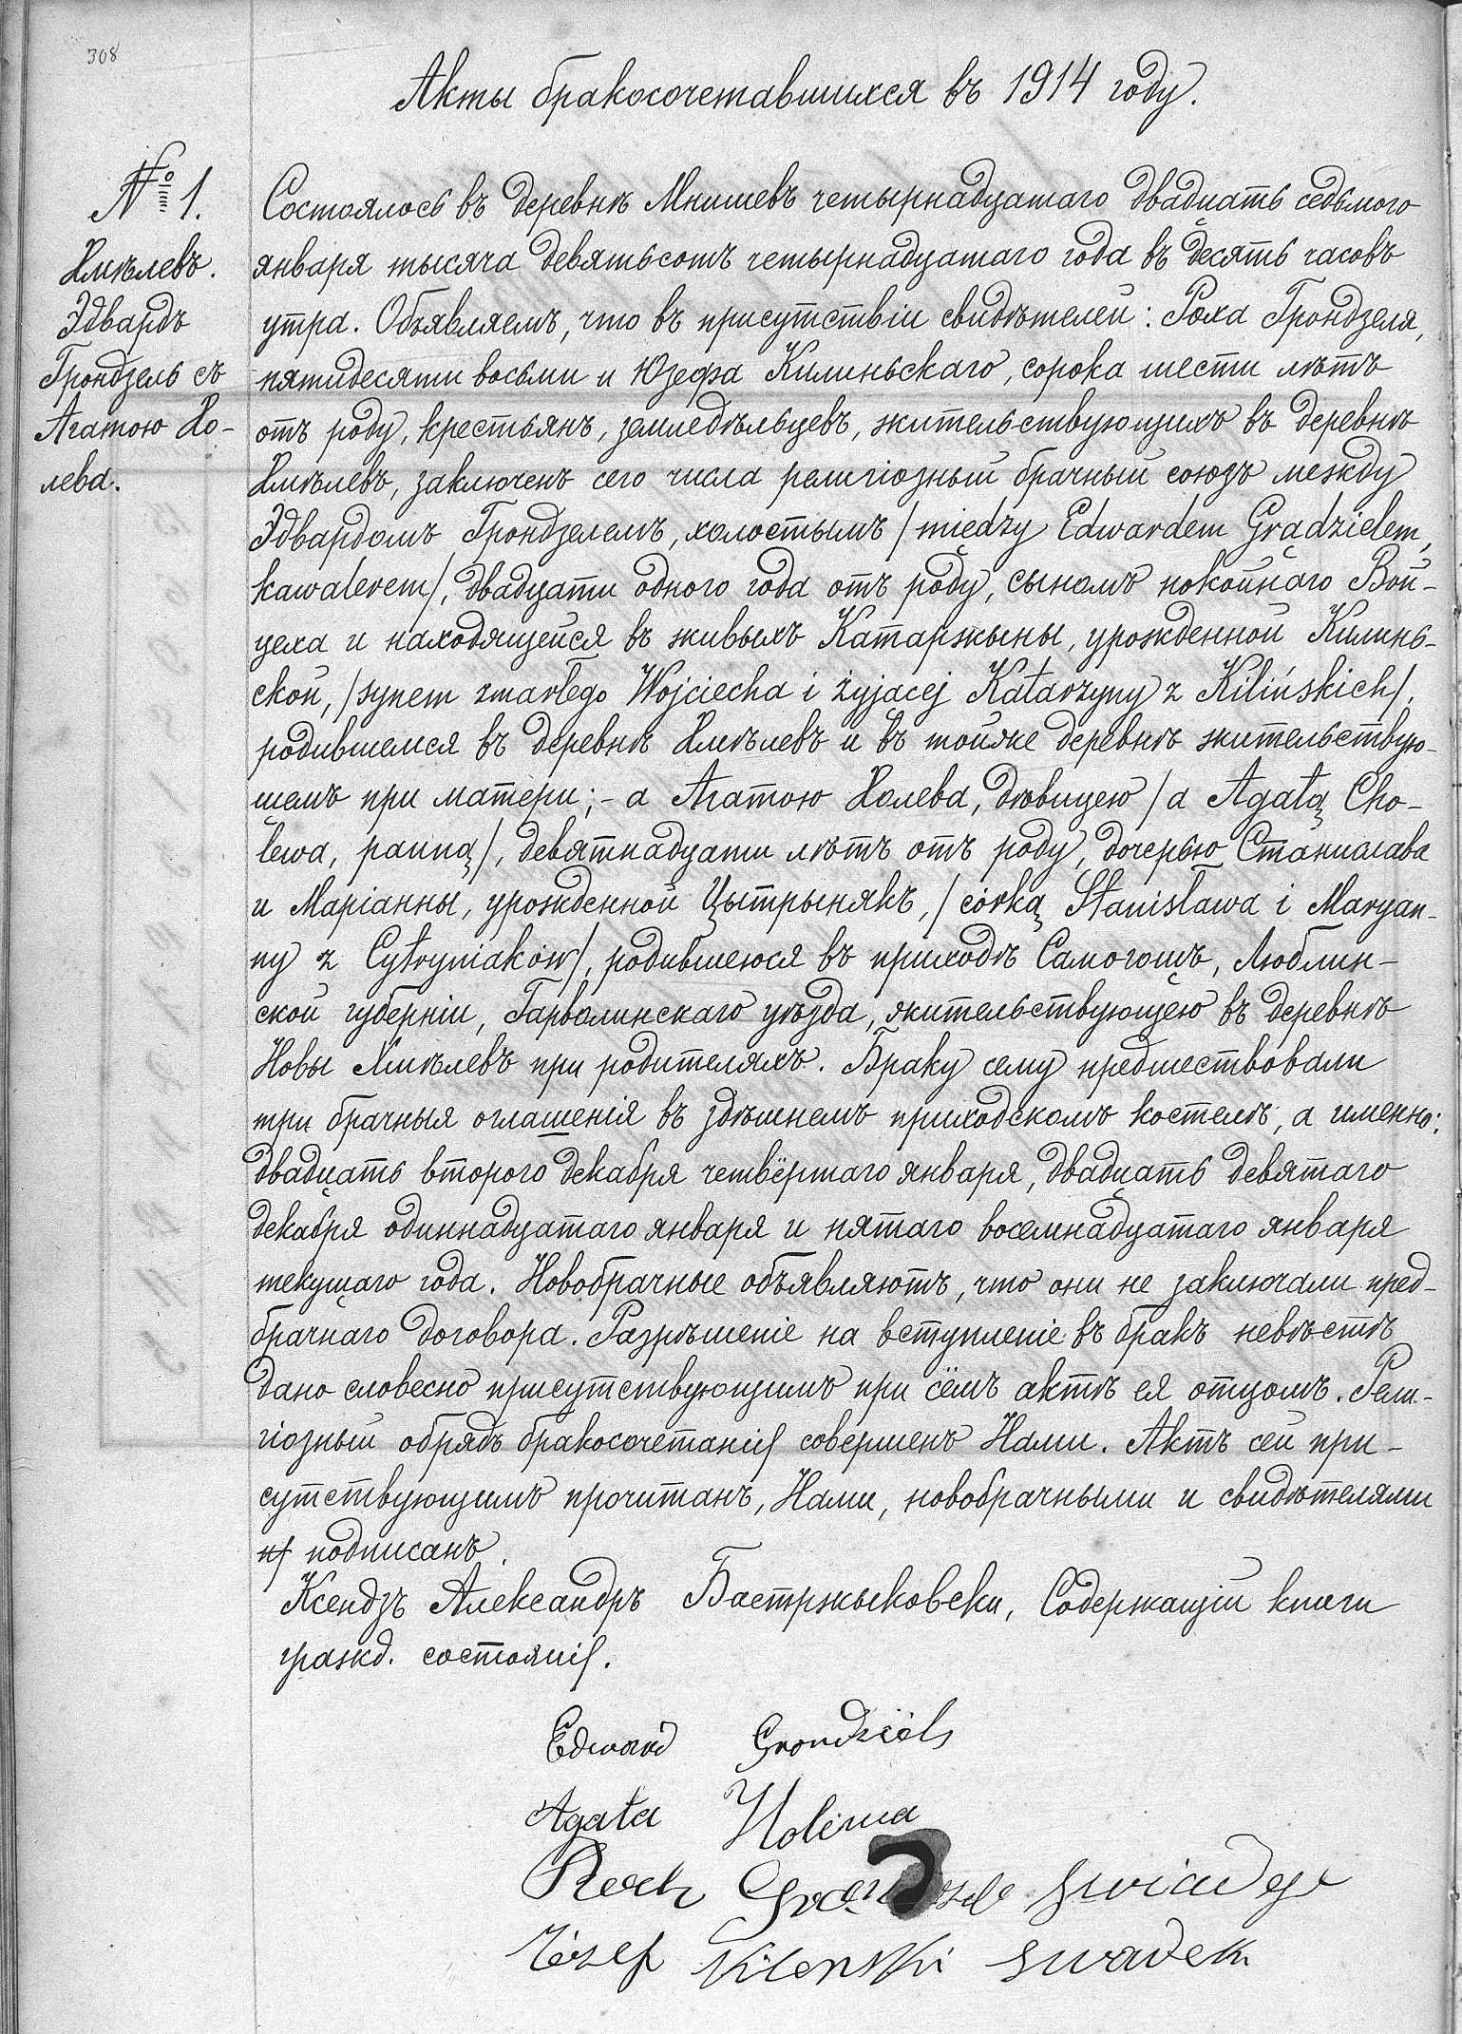 308
Акты бракосочетавшихся въ 1914 году.
№ 1.
Хмѣлевъ.
Эдвардъ
Грондзель съ
Агатою Хо-
лева.
Состоялось въ деревнѣ Мнишевъ четырнадцатаго двадцать седьмого
января тысяча девятьсотъ четырнадцатаго года въ десять часовъ
утра. Объявляемъ, что въ присутствіи свидѣтелей: Роха Грондзеля,
пятидесяти восьми и Юзефа Килиньскаго, сорока шести лѣтъ
отъ роду, крестьянъ, земледѣльцевъ, жительствующихъ въ деревнѣ
Хмѣлевъ, заключенъ сего числа религіозный брачный союзъ между
Эдвардомъ Грондзелемъ, холостымъ /między Edwardem Grądzielem,
kawalerem/, двадцати одного года отъ роду, сыномъ покойнаго Вой-
цеха и находящейся въ живыхъ Катаржыны, урожденной Килинь-
ской, /synem zmarłego Wojciecha i żyjącej Katarzyny z Kilińskich/,
родившемся въ деревнѣ Хмѣлевъ и въ тойже деревнѣ жительствую-
щемъ при матери; - а Агатою Холева, дѣвицею /a Agatą Cho-
lewa, panną/, девятнадцати лѣтъ отъ роду, дочерью Станислава
и Маріанны, урожденной Цытрынякъ, /córką Stanisława i Maryan-
ny z Cytryniaków/, родившеюся въ приходѣ Самогощъ, Люблин-
ской губерніи, Гарволинскаго уѣзда, жительствующею въ деревнѣ
Новы Хмѣлевъ при родителяхъ. Браку сему предшествовали
три брачныя оглашенія въ здѣшнемъ приходскомъ костелѣ, а именно:
двадцать второго декабря четвёртаго января, двадцать девятаго
декабря одиннадцатаго января и пятаго восемнадцатаго января
текущаго года. Новобрачные объявляютъ, что они не заключали пред-
брачнаго договора. Разрѣшеніе на вступленіе въ бракъ невѣстѣ
дано словесно присутствующимъ при сёмъ актѣ ея отцомъ. Рели-
гіозный обрядъ бракосочетанія совершенъ Нами. Актъ сей при-
сутствующимъ прочитанъ, Нами, новобрачными и свидѣтелями
подписанъ.
Ксендзъ Александръ Бастржыковски, Содержащій книги
гражд. состоянія.
Edward Grondziel
Agata Holewa
Roch
Józef Kilenski swadek